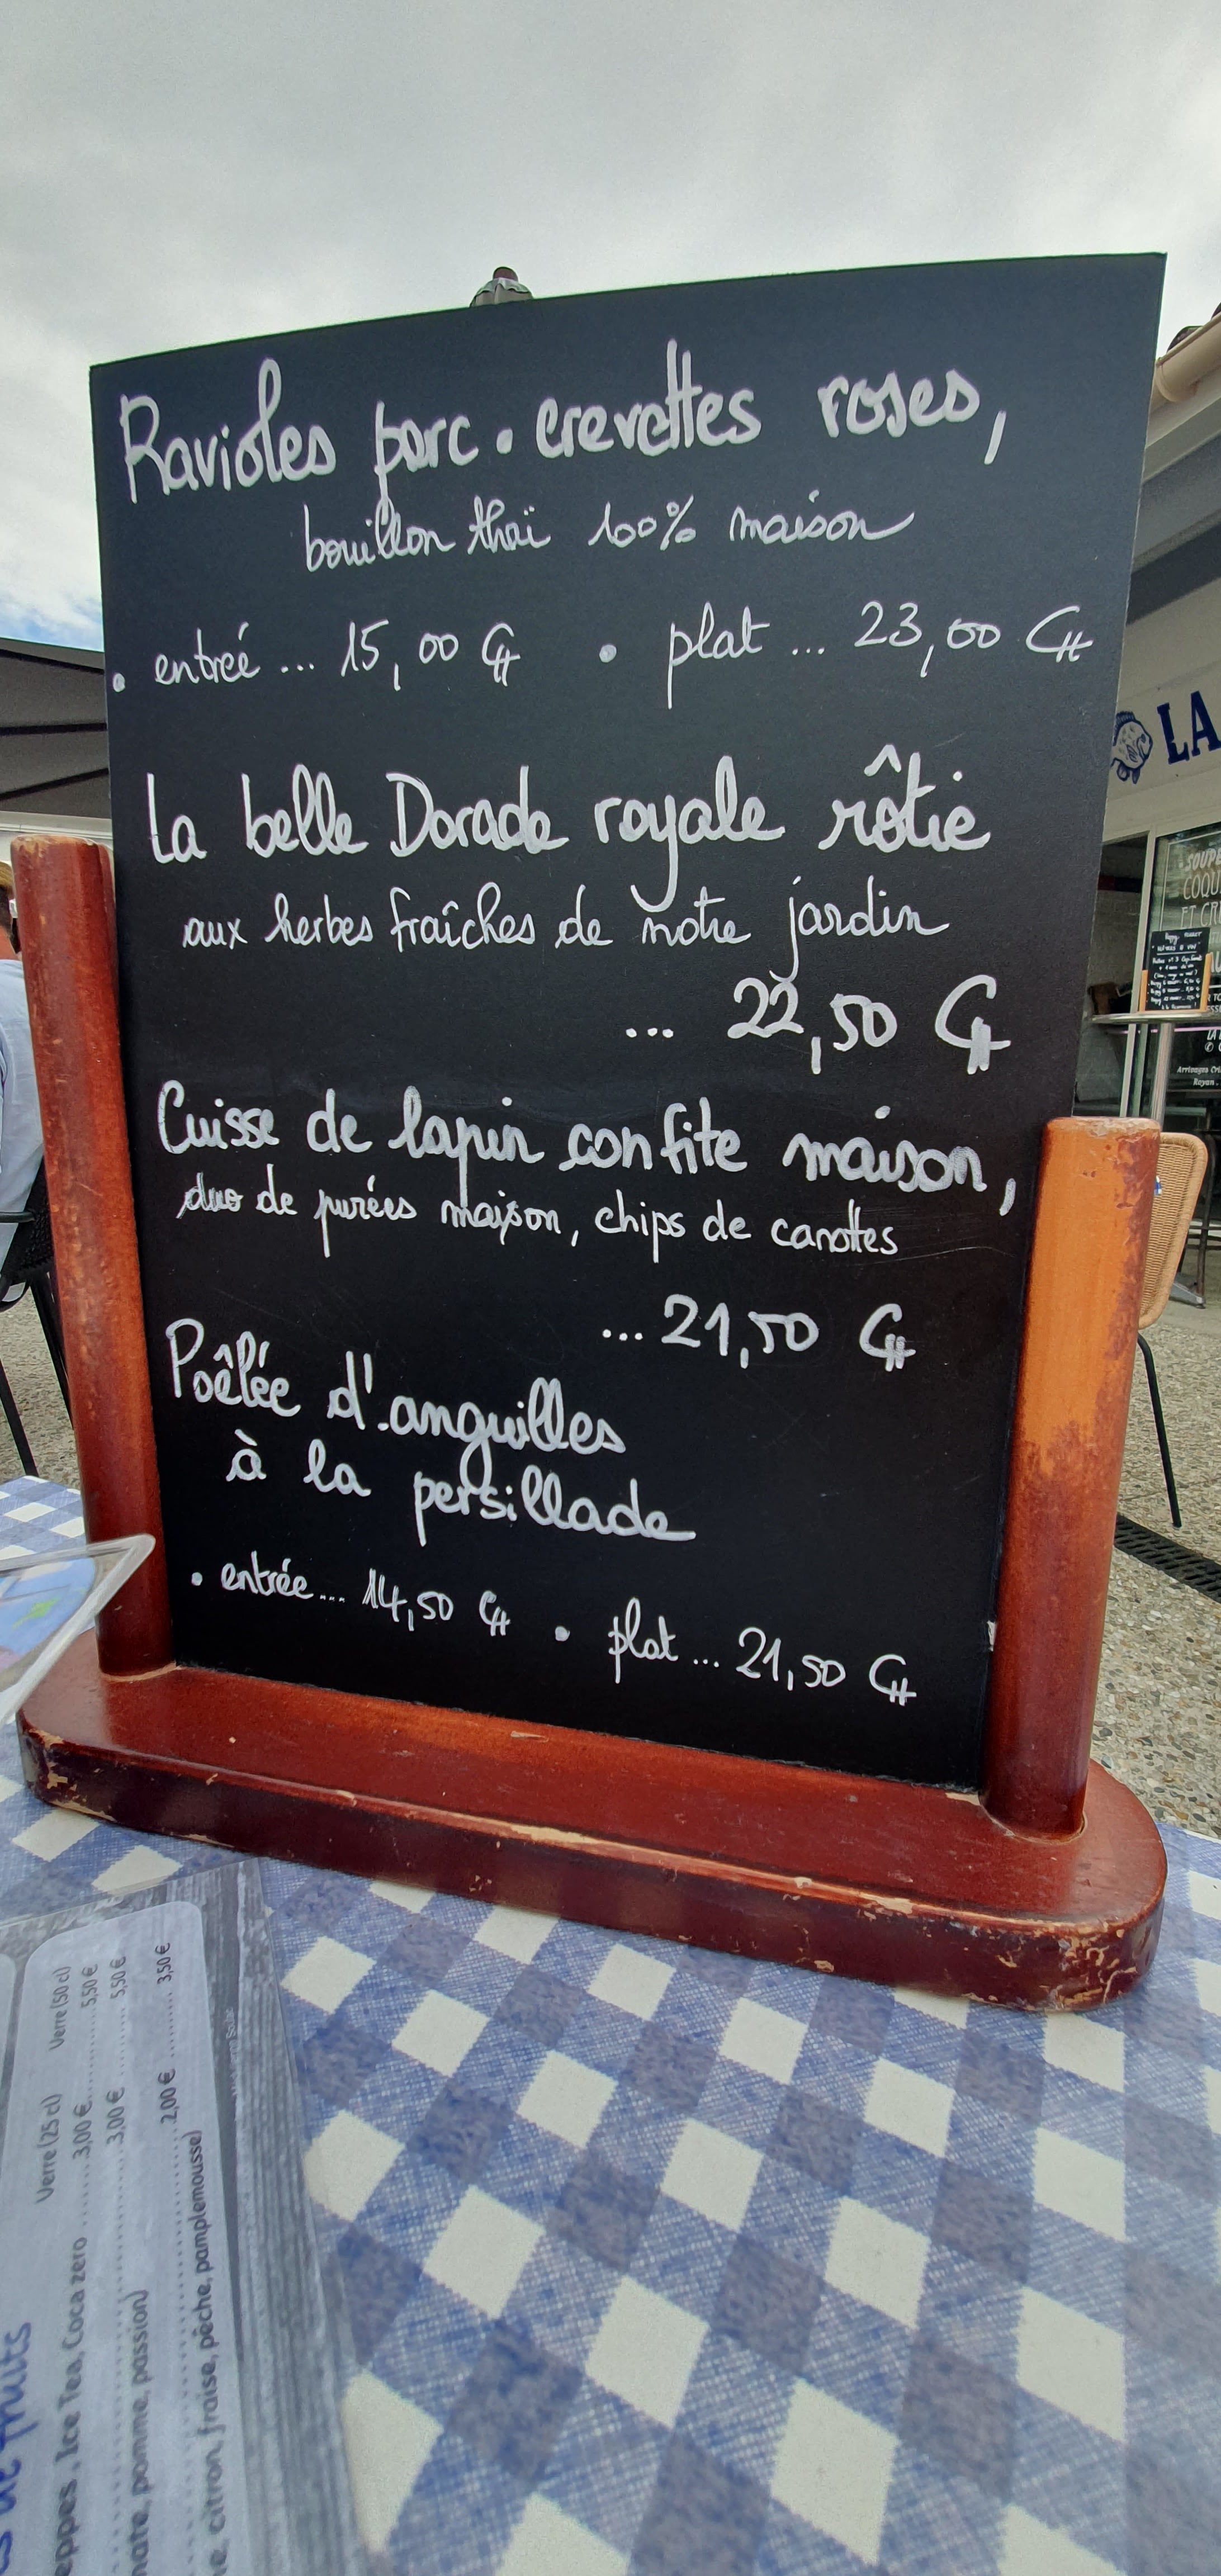 Ravioles porc. crevettes roses,
bouillon thaï 100% maison
• entrée ... 15,00 € • plat ... 23,00 €
La belle Dorade royale rôtie
aux herbes fraîches de notre jardin
... 22,50 €
Cuisse de lapin confite maison,
duo de purées maison, chips de carottes
... 21,50 €
Poêlée d'anguilles
à la persillade
• entrée... 14,50 € • plat ... 21,50 €
LA
SOUPE
COQU
ET CR
Arrivages Cri
Royan
Verre (25 cl) Verre (50 cl)
eppes, Ice Tea, Coca zero ........ 3,00 € ........ 5,50 €
mate, pomme, passion) ........ 3,00 € ........ 5,50 €
........ 2,00 € ........ 3,50 €
citron, fraise, pêche, pamplemousse)